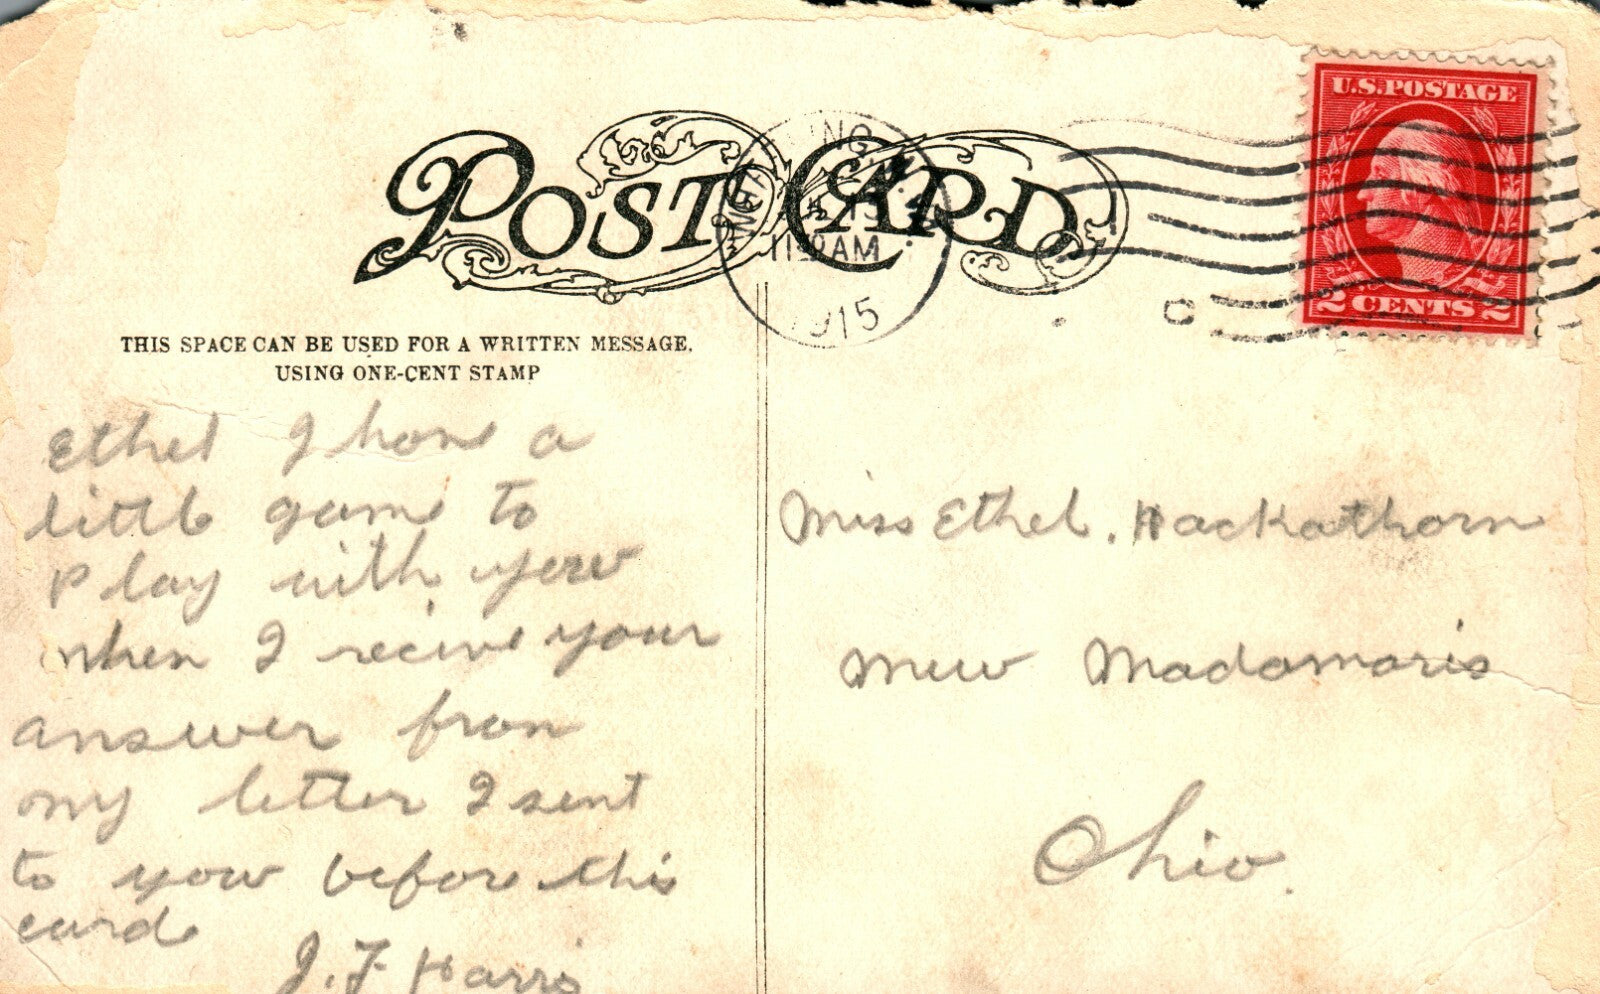 POST CARD
U.S. POSTAGE
2 CENTS 2
AM
1915
THIS SPACE CAN BE USED FOR A WRITTEN MESSAGE.
USING ONE-CENT STAMP
Ethel I have a
little game to
Play with yow
when I recive your
answer from
my letter I sent
to yow before this
card
J. F. Harris
Miss Ethel. Hackathorn
New Madamoris
Ohio.